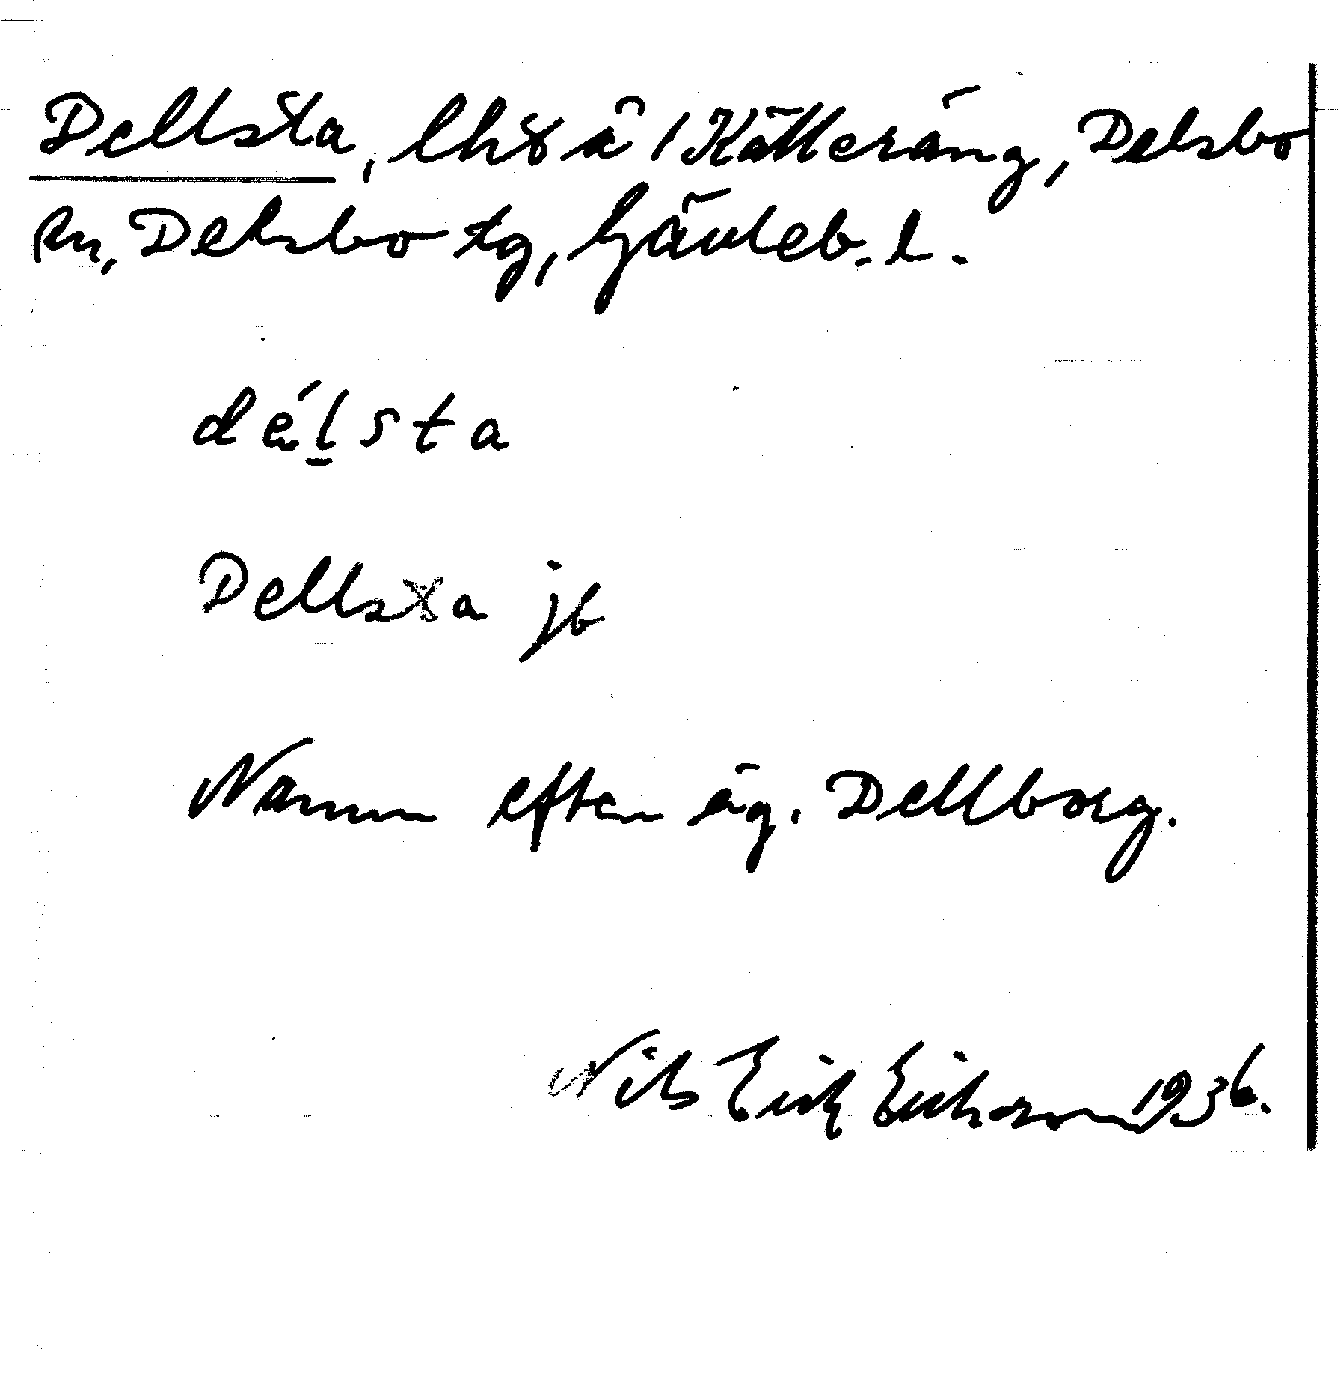 Dellsta, lht å 1 Källeräng, Delsbo
sn, Delsbo tg, Gävleb. l.
délsta
Dellsta jb
Namn efter äg. Dellborg.
Nils Erik Erikson 1936.